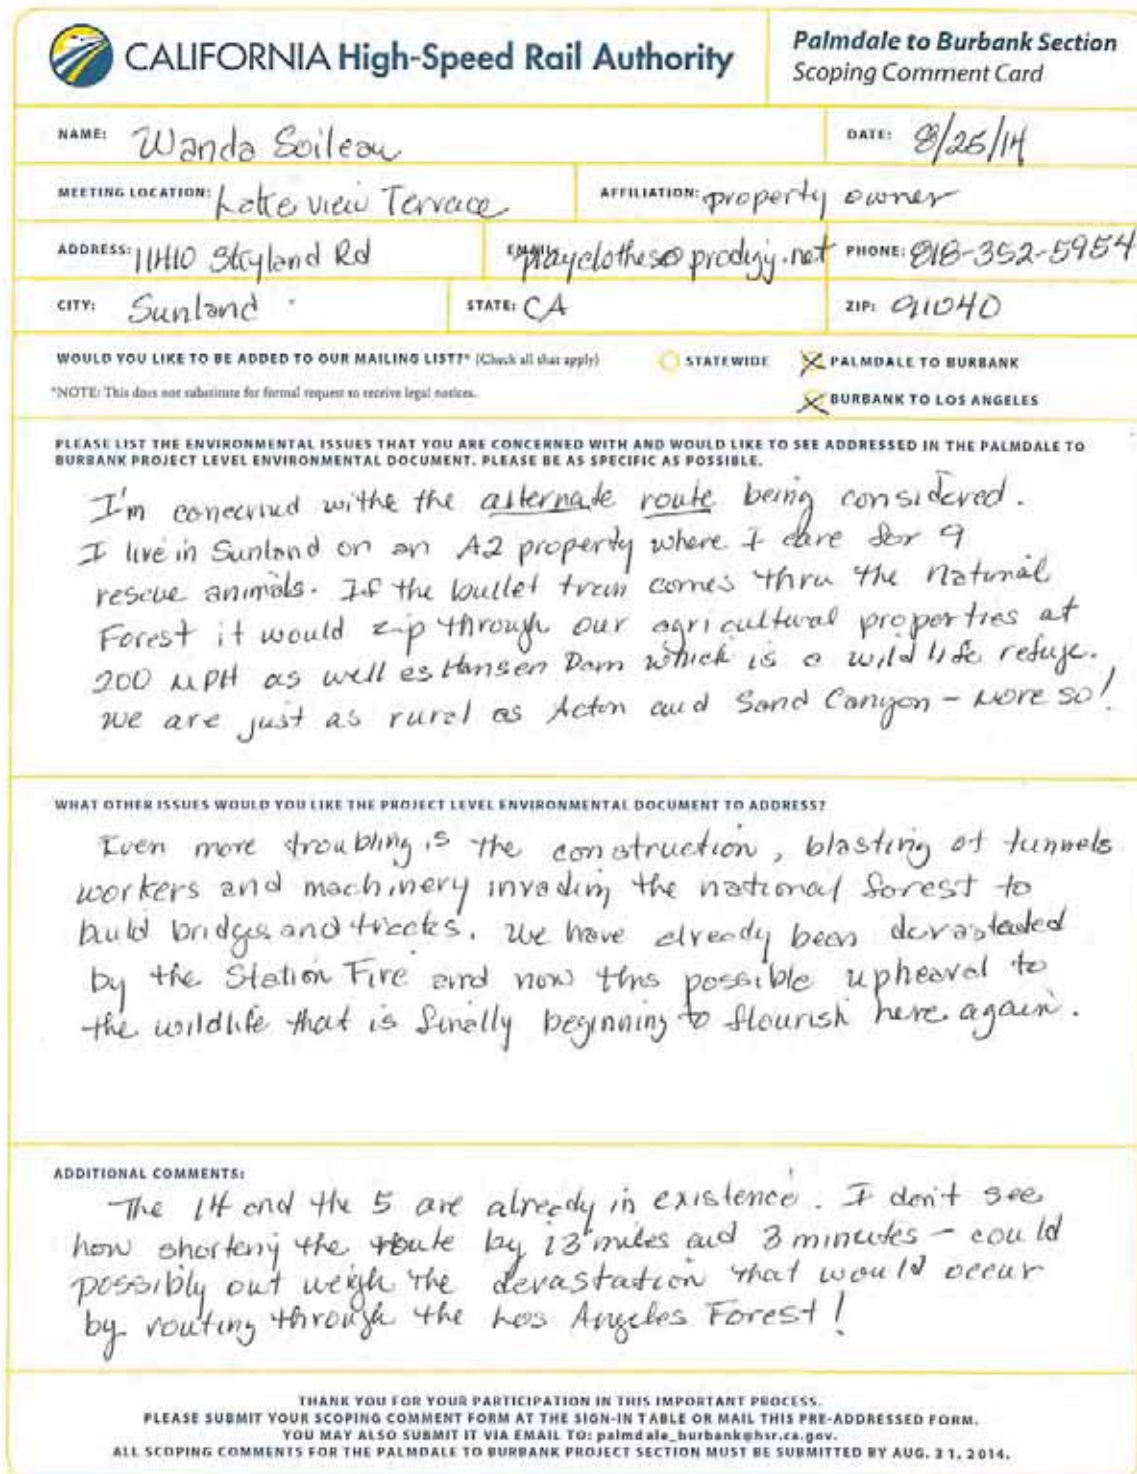 CALIFORNIA High-Speed Rail Authority
Palmdale to Burbank Section
Scoping Comment Card
NAME: Wanda Soileau
DATE: 8/25/14
MEETING LOCATION: Lake view Terrace
AFFILIATION: property owner
ADDRESS: Skyland Rd
EMAIL: playclothes@prodigy.net
PHONE: 818-352-5954
CITY: Sunland
STATE: CA
ZIP: 91040
WOULD YOU LIKE TO BE ADDED TO OUR MAILING LIST?* (Check all that apply)
STATEWIDE
PALMDALE TO BURBANK
*NOTE: This does not substitute for formal request to receive legal notices.
BURBANK TO LOS ANGELES
PLEASE LIST THE ENVIRONMENTAL ISSUES THAT YOU ARE CONCERNED WITH AND WOULD LIKE TO SEE ADDRESSED IN THE PALMDALE TO
BURBANK PROJECT LEVEL ENVIRONMENTAL DOCUMENT. PLEASE BE AS SPECIFIC AS POSSIBLE.
I'm concerned withe the alternate route being considered.
I live in Sunland on an A2 property where I care for 9
rescue animals. If the bullet train comes thru the National
Forest it would zip through our agricultural properties at
200 MPH as well as Hansen Dam which is a wild life refuge.
We are just as rural as Acton and Sand Canyon - More so!
WHAT OTHER ISSUES WOULD YOU LIKE THE PROJECT LEVEL ENVIRONMENTAL DOCUMENT TO ADDRESS?
Even more troubling is the construction, blasting of tunnels
workers and machinery invading the national forest to
build bridges and tracks. We have already been devastated
by the Station Fire and now this possible upheaval to
the wildlife that is finally beginning to flourish here again.
ADDITIONAL COMMENTS:
The 14 and the 5 are already in existence. I don't see
how shorteng the route by 13 miles and 3 minutes - could
possibly out weigh the devastation that would occur
by routing through the Los Angeles Forest!
THANK YOU FOR YOUR PARTICIPATION IN THIS IMPORTANT PROCESS.
PLEASE SUBMIT YOUR SCOPING COMMENT FORM AT THE SIGN-IN TABLE OR MAIL THIS PRE-ADDRESSED FORM.
YOU MAY ALSO SUBMIT IT VIA EMAIL TO: palmdale_burbank@hsr.ca.gov.
ALL SCOPING COMMENTS FOR THE PALMDALE TO BURBANK PROJECT SECTION MUST BE SUBMITTED BY AUG. 31, 2014.